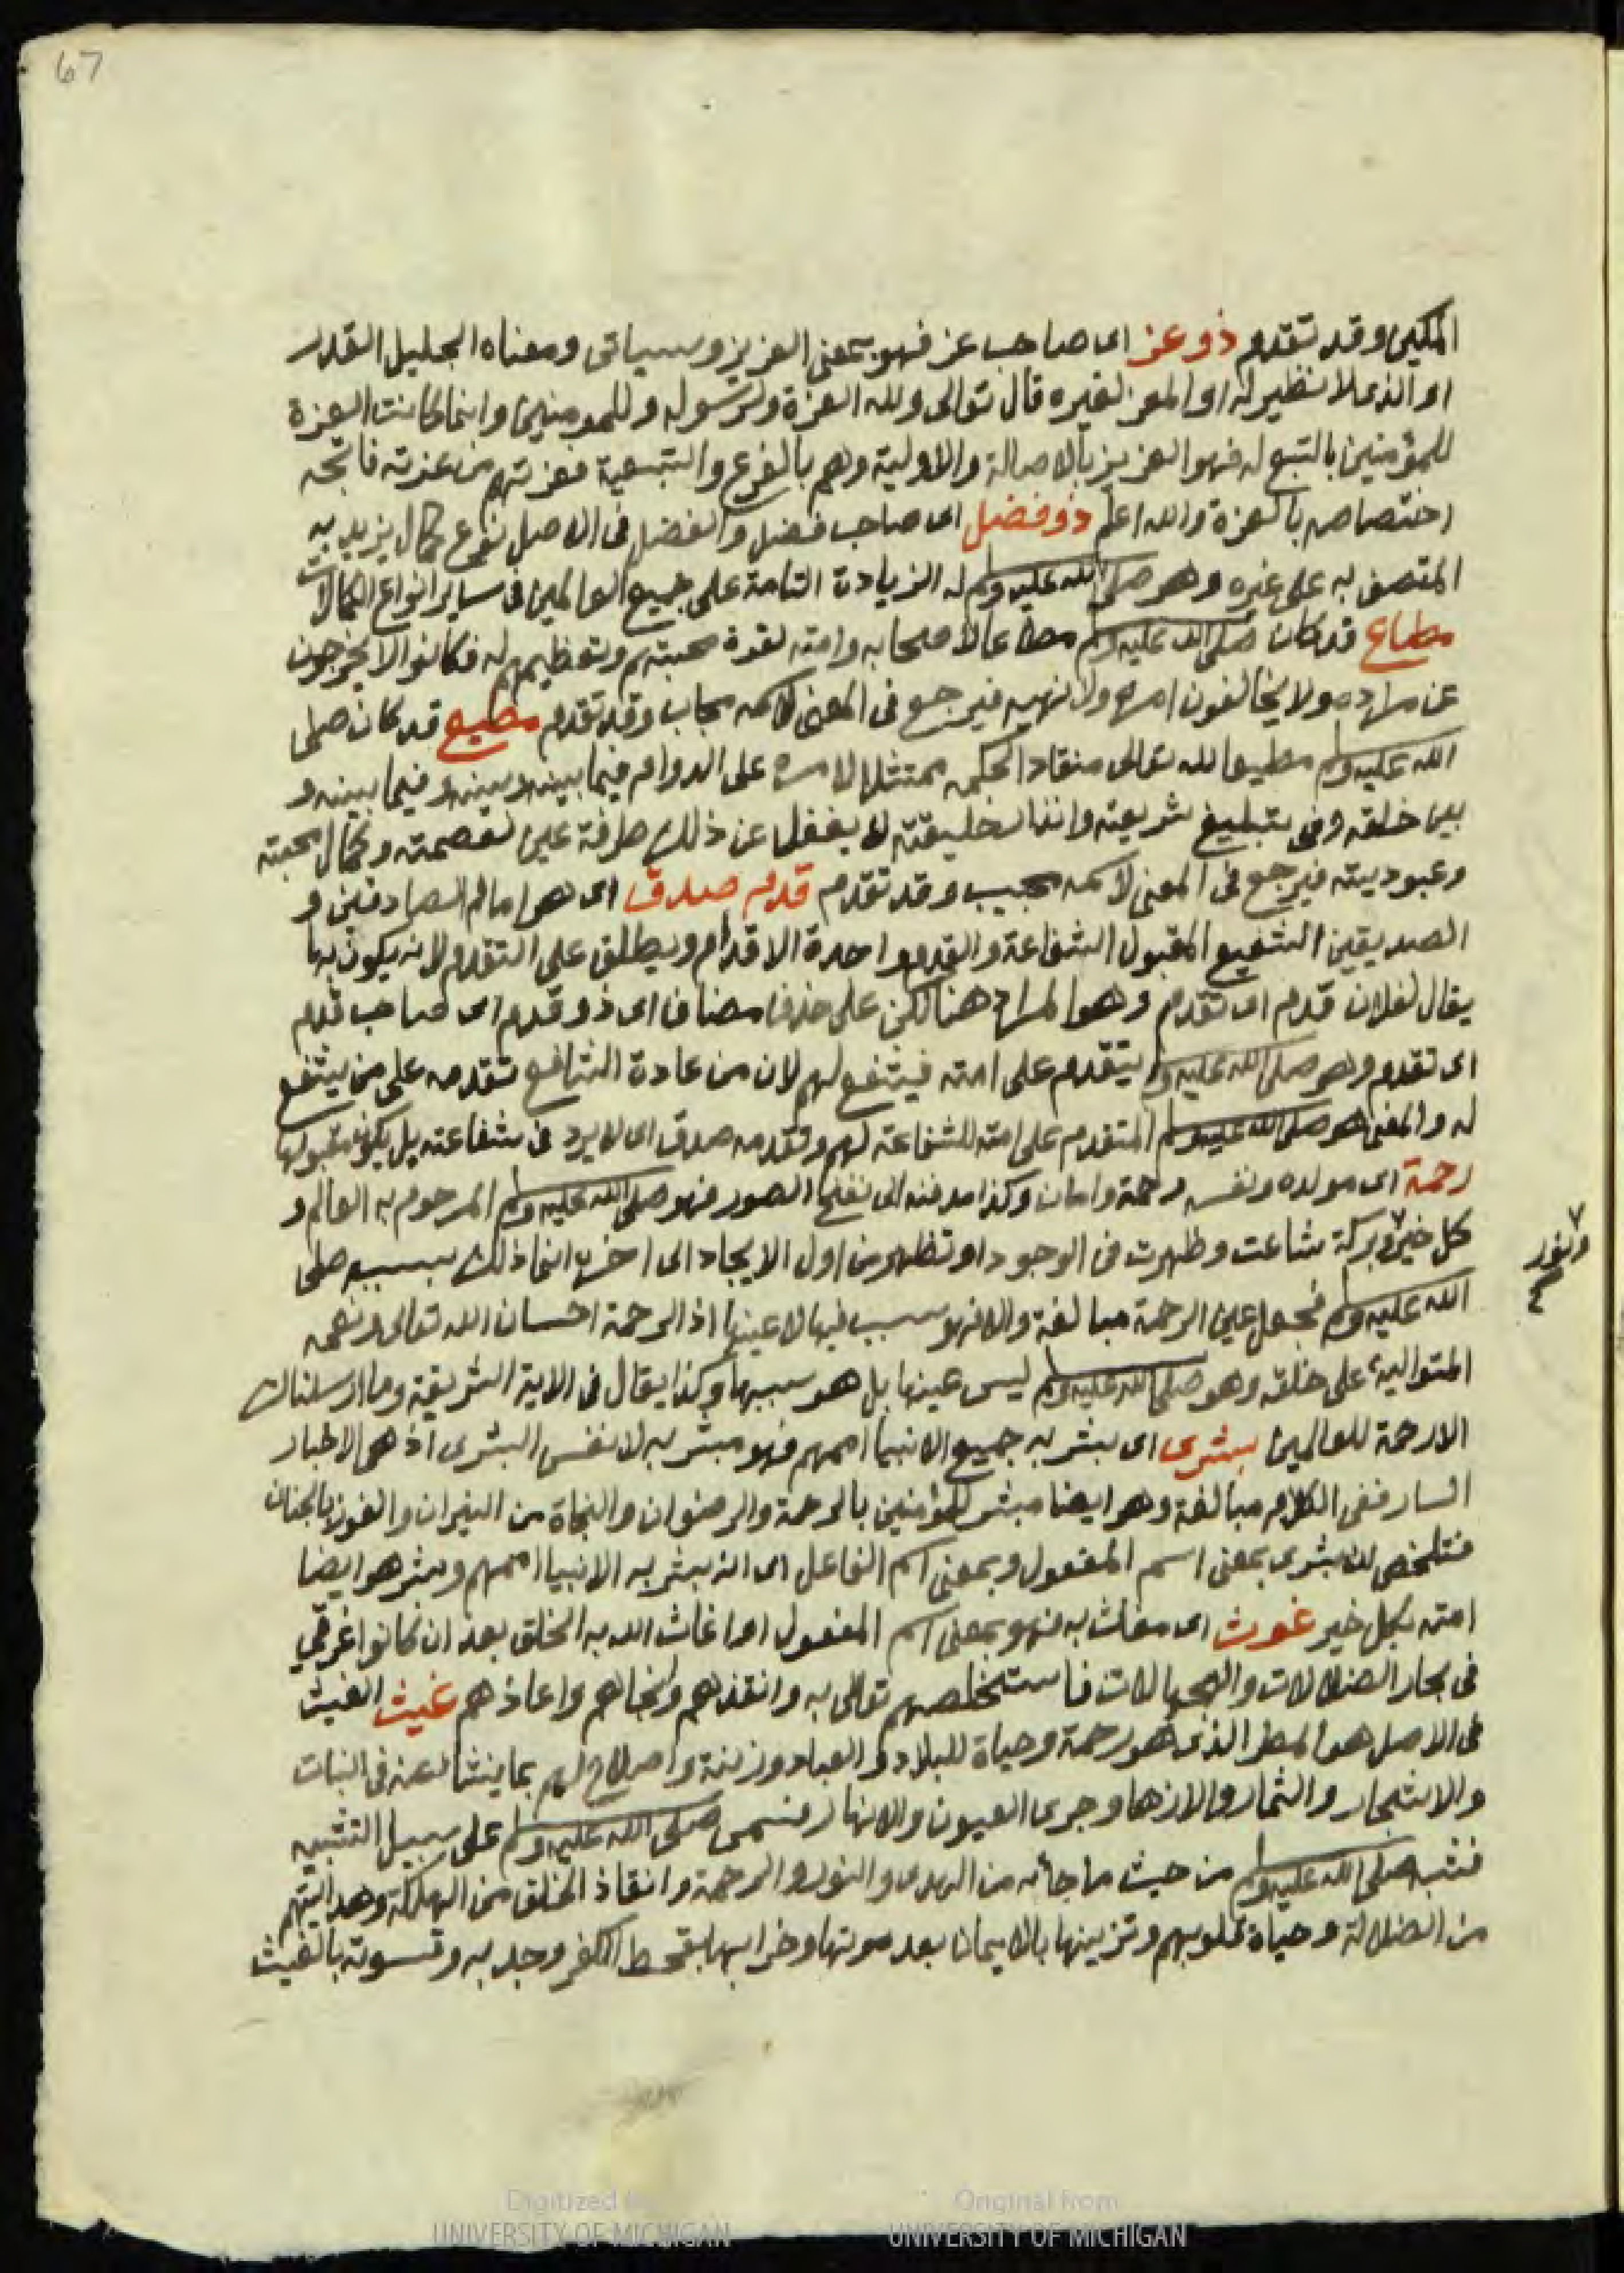 67
المكين وقد تقدم ذو عز اى صاحب عز فهو بمعنى العزيز وسياتى ومعناه الجليل القدر
او الذى لا نظير له او المعز لغيره قال تعالى ولله العزة ولرسوله وللمومنين وانما كانت العزة
للمؤمنين بالتبع له فهو العزيز بالاصالة والاولية وهم بالفرع والتبعية فعزتهم من عزته فاتجه
اختصاصه بالعزة والله اعلم ذو فضل اى صاحب فضل والفضل فى الاصل نوع كمال يزيد به
المتصف به على غيره وهو صلى الله عليه وسلم له الزيادة التامة على جميع العالمين فى ساير انواع الكمالات
مطاع قد كان صلى الله عليه وسلم مطاعا لاصحابه وامته لقوة محبتهم وتعظيمهم له فكانوا لا يخرجون
عن مراده ولا يخالفون امره ولا نهيه فيرجع فى المعنى لاسمه مجاب وقد تقدم مطيع قد كان صلى
الله عليه وسلم مطيعا لله تعالى منقادا لحكمه ممتثلا لامره على الدوام فيما بينه وبينه وفيما بينه و
بين خلقه وفى تبليغ شريعته وانذار خليقته لا يغفل عن ذلك طرفة عين لعصمته وكمال محبته
وعبوديته فيرجع فى المعنى لاسمه مجيب وقد تقدم قدم صدق اى هو امام الصادقين و
الصديقين الشفيع المقبول الشفاعة والقدم واحدة الاقدام ويطلق على التقدم لانه يكون بها
يقال لفلان قدم اى تقدم وهو المراد هنا لكن على حذف مضاف اى ذو قدم اى صاحب قدم
اى تقدم وهو صلى الله عليه وسلم يتقدم على امته فيشفع لهم لان من عادة الشافع تقدمه على من يشفع
له والمعنى هو صلى الله عليه وسلم المتقدم على امته للشفاعة لهم وتقدمه صدق اى لا يرد فى شفاعته بل يكون مقبولها
رحمة اى مولده ونفسه رحمة وامان وكذا مدفنه الى نفخ الصور فهو صلى الله عليه وسلم المرحوم به العالم و
كل خير وبركة شاعت وظهرت فى الوجود او تظهر من اول الايجاد الى اخره انما ذلك بسببه صلى
ونور
الله عليه وسلم فجعل عين الرحمة مبالغة والا فهو سبب فيها لا عينها اذ الرحمة احسان الله تعالى ونعمه
المتوالية على خلقه وهو صلى الله عليه وسلم ليس عينها بل هو سببها وكذا يقال فى الاية الشريفة وما ارسلناك
الا رحمة للعالمين بشرى اى بشر به جميع الانبيا اممهم فهو مبشر به لا نفس البشرى اذ هى الاخبار
السار ففى الكلام مبالغة وهو ايضا مبشر للمؤمنين بالرحمة والرضوان والنجاة من النيران والفوز بالجنان
فتلخص ان بشرى بمعنى اسم المفعول وبمعنى اسم الفاعل اى انه بشر به الانبيا اممهم وبشر هو ايضا
امته بكل خير غوث اى مغاث به فهو بمعنى اسم المفعول اى اغاث الله به الخلق بعد ان كانوا غرقى
فى بحار الضلالات والجهالات فاستخلصهم تعالى به وانقذهم وانجاهم واعاذهم غيث الغيث
فى الاصل هو المطر الذى هو رحمة وحياة للبلاد والعباد وزينة واصلاح لهم بما ينشا عنه فى النبات
والاشجار والثمار والازهار وجرى العيون والانهار فسمى صلى الله عليه وسلم على سبيل التشبيه
فشبه صلى الله عليه وسلم من حيث ما جا به من الهدى والنور والرحمة وانقاذ الخلق من الهلكة وهدايتهم
من الضلالة وحياة قلوبهم وتزيينها بالايمان بعد موتها وخرابها بقحط الكفر وجدبه وقسوته بالغيث
Digitized by
UNIVERSITY OF MICHIGAN
Original from
UNIVERSITY OF MICHIGAN